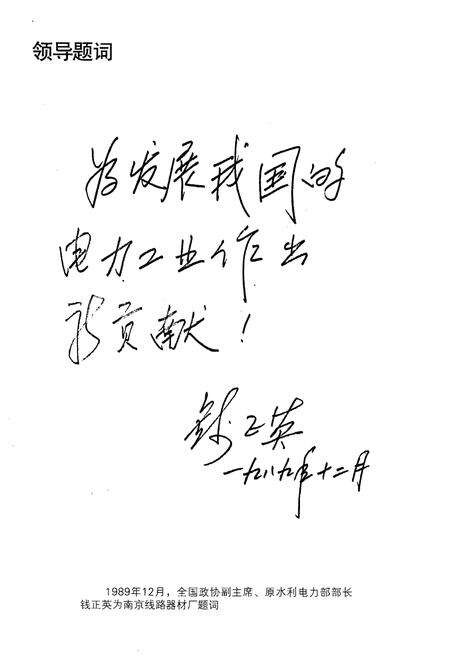 领导题词
为发展我国的
电力工业作出
新贡献！
钱正英
一九八九年十二月
1989年12月，全国政协副主席、原水利电力部部长
钱正英为南京线路器材厂题词